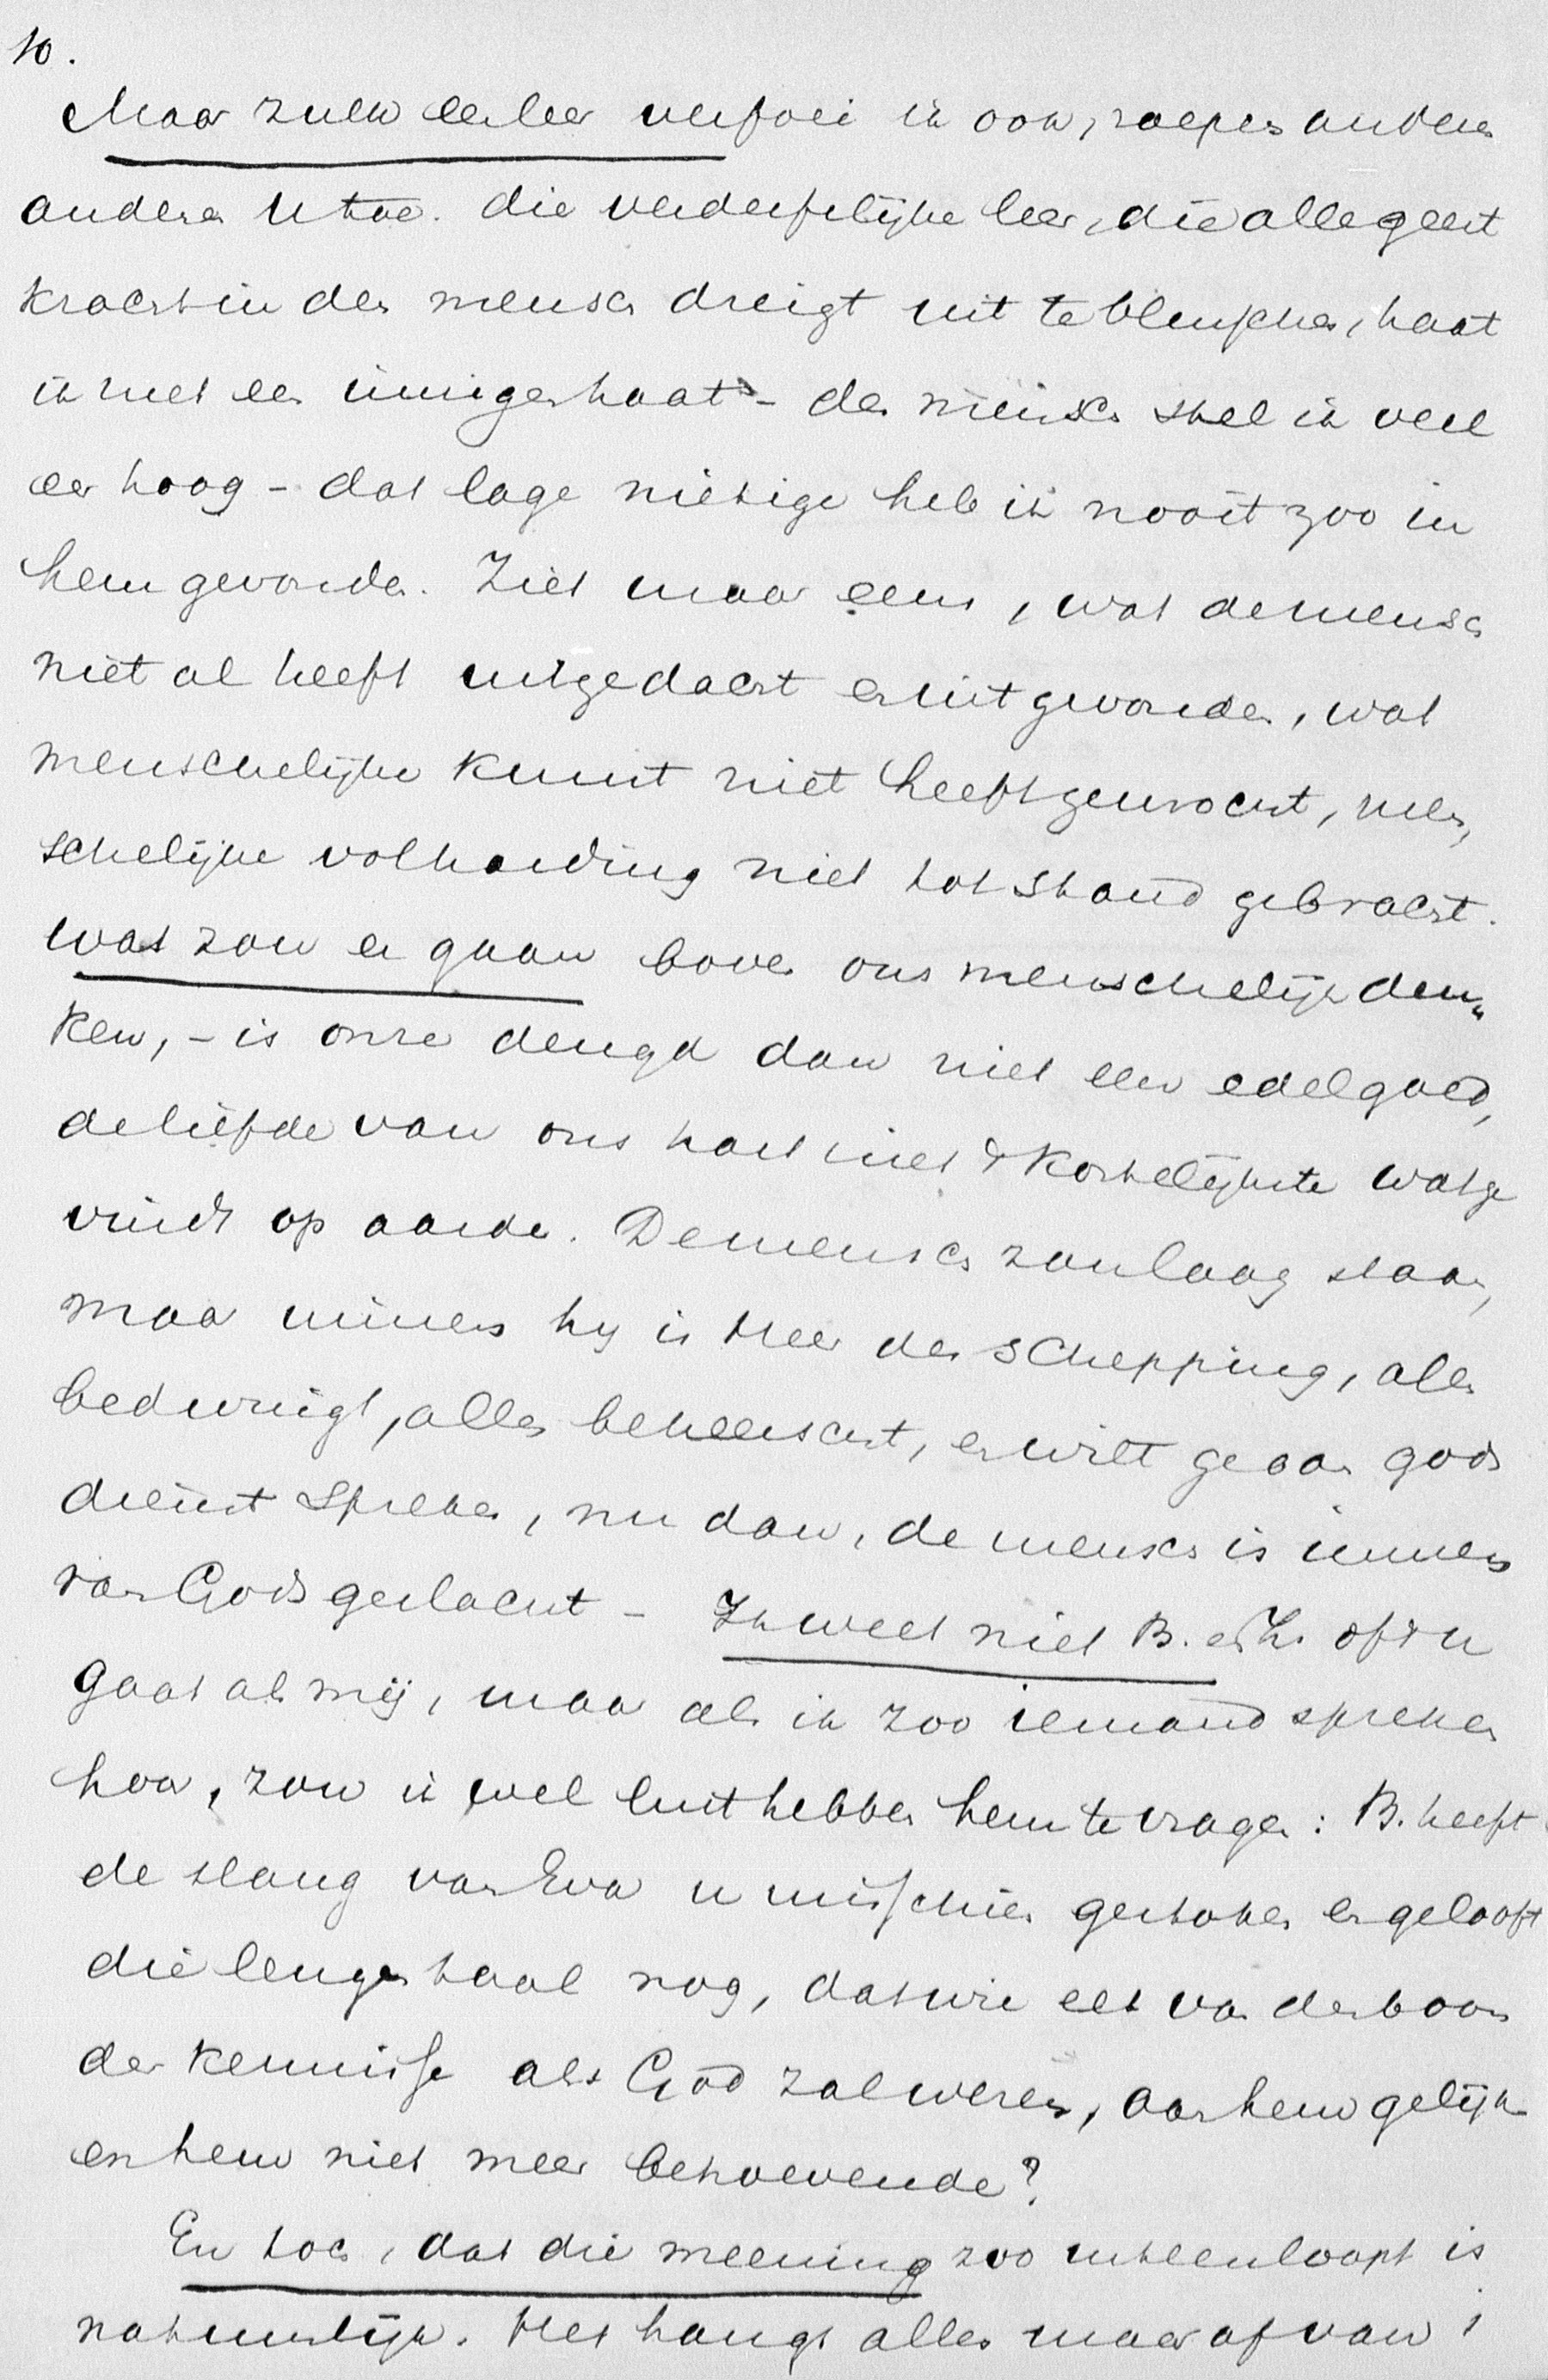 10.
Maar zulk een leer verfoei ik ook, roepen anderen
andere U toe. die verderfelijke leer, die alle geest
kracht in den mensch dreigt uit te blusschen, haat
ik met een innigen haat - den mensch stel ik veel
eer hoog - dat lage nietige heb ik nooit zoo in
hem gevonden. Ziet maar eens, wat de mensch
niet al heeft uitgedacht en uitgevonden, wat
menschelijke kunst niet heeft gewrocht, men,
schelijke volharding niet tot stand gebracht.
wat zou er gaan boven ons menschelijk den„
ken, - is onze deugd dan niet een edel goed,
de liefde van ons hart niet 't kostelijkste wat ge
vindt op aarde. De mensch zou laag staan,
maar immers hij is Heer der schepping, alles
bedwingt, alles beheerscht, en wilt ge van gods
dienst spreken, nu dan, de mensch is immers
van Gods geslacht - Ik weet niet B. en Z. of 't u
gaat als mij, maar als ik zoo iemand spreken
hoor, zou ik wel lust hebben hem te vragen: B. heeft
de slang van Eva u misschien gestoken en gelooft
die leugentaal nog, dat wie eet van den boom
der kennisse als God zal wezen, aan hem gelijk
en hem niet meer behoevende?
En toch, dat die meening zoo uiteenloopt is
natuurlijk. Het hangt alles maar af van 't